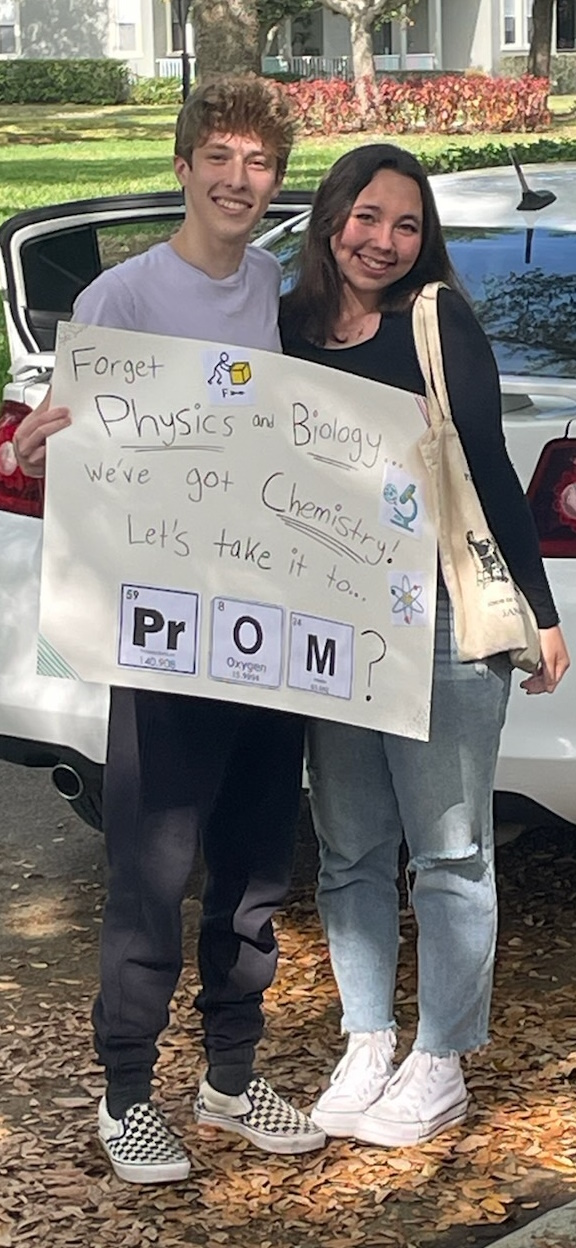 Forget
F=
Physics and Biology...
we've got Chemistry!
Let's take it to...
59
Pr
140.908
8
O
Oxygen
15.9994
M
?